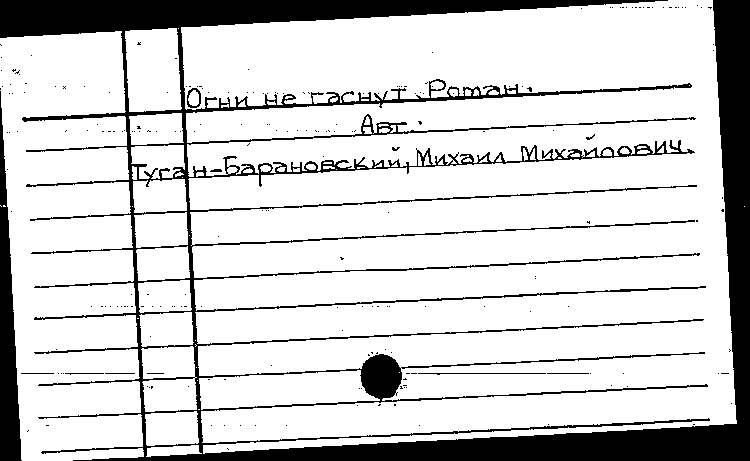 Огни не гаснут. Роман.
Авт.:
Туган-Барановский, Михаил Михайлович.